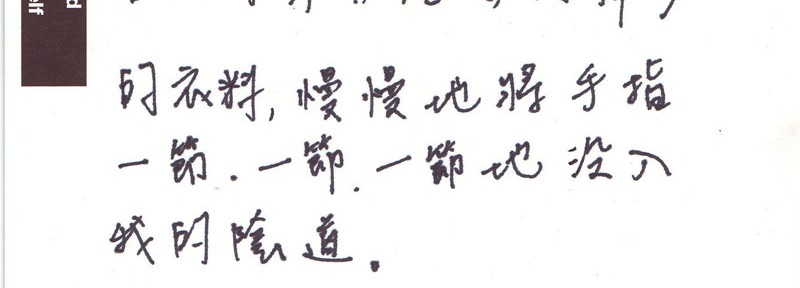 的衣料,慢慢地將手指
一節.一節.一節地沒入
我的陰道。
d
elf